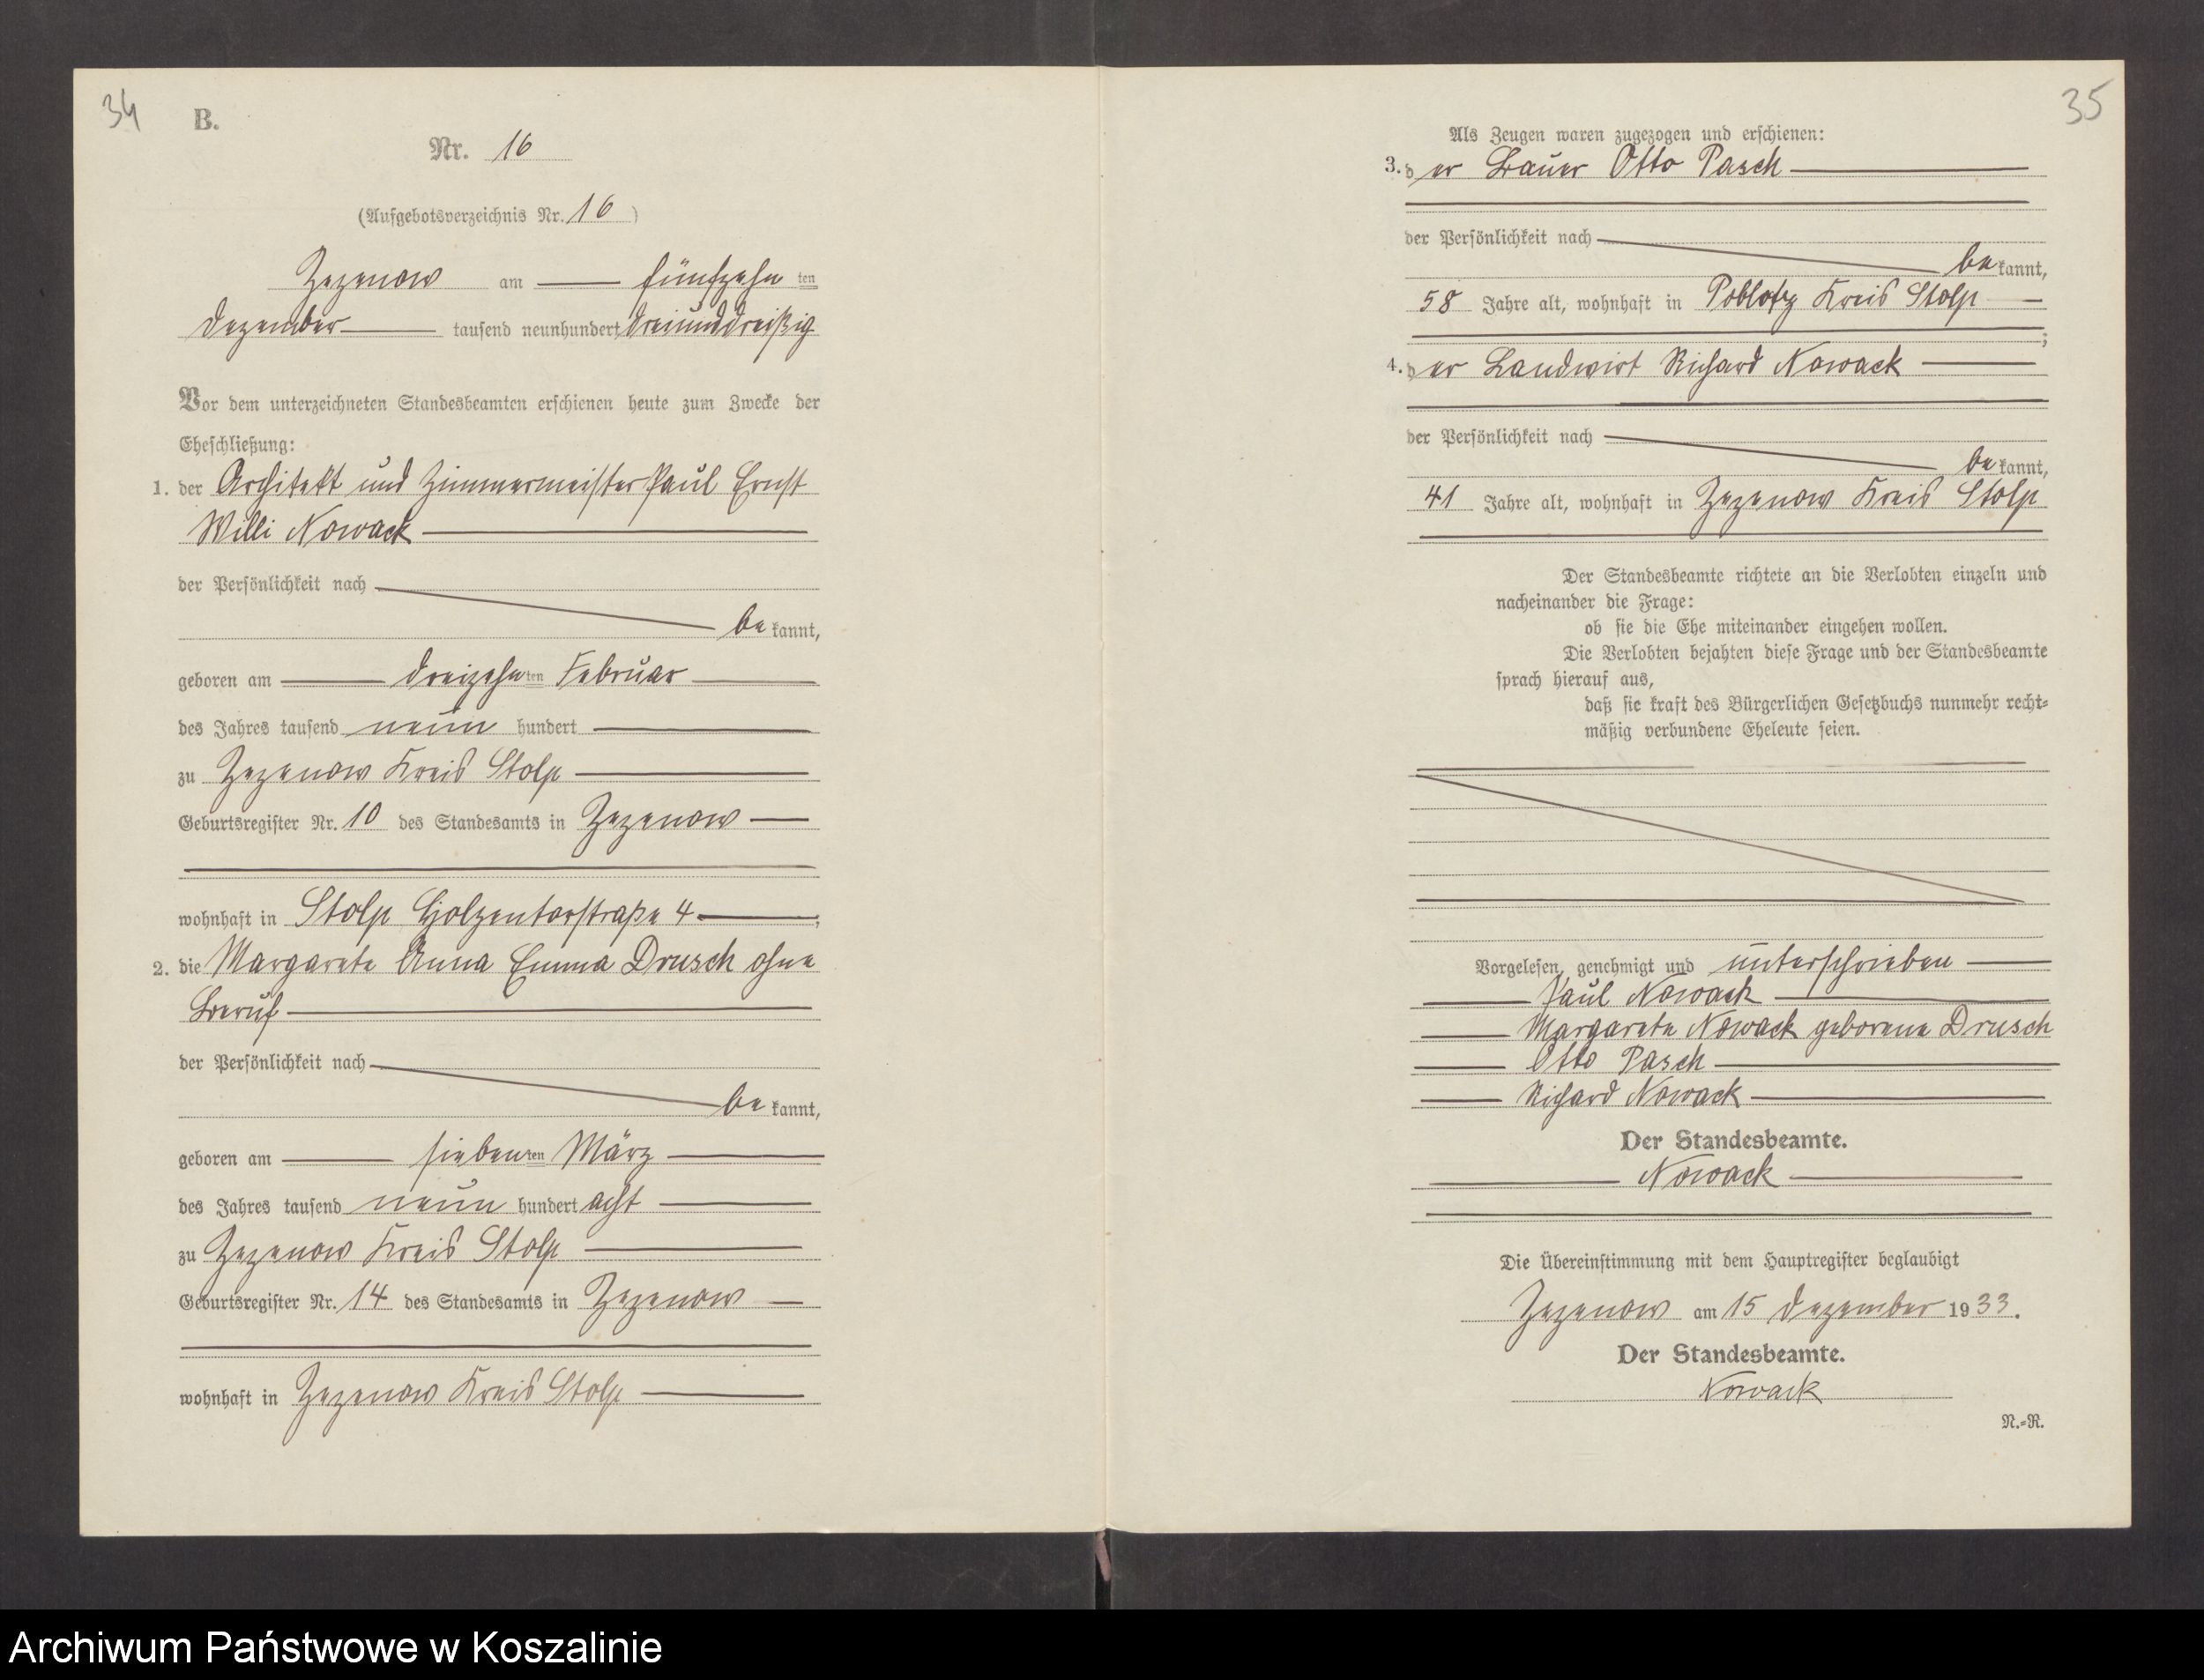 34
B.
Nr. 16
(Aufgebotsverzeichnis Nr. 16)
Zezenow am fünfzehnten
Dezember tausend neunhundert dreiunddreißig
Vor dem unterzeichneten Standesbeamten erschienen heute zum Zwecke der
Eheschließung:
1. der Architekt und Zimmermeister Paul Ernst
Willi Nowack
der Persönlichkeit nach
bekannt,
geboren am dreizehnten Februar
des Jahres tausend neun hundert
zu Zezenow Kreis Stolp
Geburtsregister Nr. 10 des Standesamts in Zezenow
wohnhaft in Stolp Holzentorstraße 4;
2. die Margarete Anna Emma Drusch ohne
Beruf
der Persönlichkeit nach
bekannt,
geboren am siebenten März
des Jahres tausend neun hundert acht
zu Zezenow Kreis Stolp
Geburtsregister Nr. 14 des Standesamts in Zezenow
wohnhaft in Zezenow Kreis Stolp
35
Als Zeugen waren zugezogen und erschienen:
3. der Bauer Otto Pasch
der Persönlichkeit nach
bekannt,
58 Jahre alt, wohnhaft in Poblotz Kreis Stolp
;
4. der Landwirt Richard Nowack
der Persönlichkeit nach
bekannt,
41 Jahre alt, wohnhaft in Zezenow Kreis Stolp
Der Standesbeamte richtete an die Verlobten einzeln und
nacheinander die Frage:
ob sie die Ehe miteinander eingehen wollen.
Die Verlobten bejahten diese Frage und der Standesbeamte
sprach hierauf aus,
daß sie kraft des Bürgerlichen Gesetzbuchs nunmehr recht-
mäßig verbundene Eheleute seien.
Vorgelesen, genehmigt und unterschrieben
Paul Nowack
Margarete Nowack geborene Drusch
Otto Pasch
Richard Nowack
Der Standesbeamte.
Nowack
Die Übereinstimmung mit dem Hauptregister beglaubigt
Zezenow am 15 Dezember 1933.
Der Standesbeamte.
Nowack
N.-R.
Archiwum Państwowe w Koszalinie